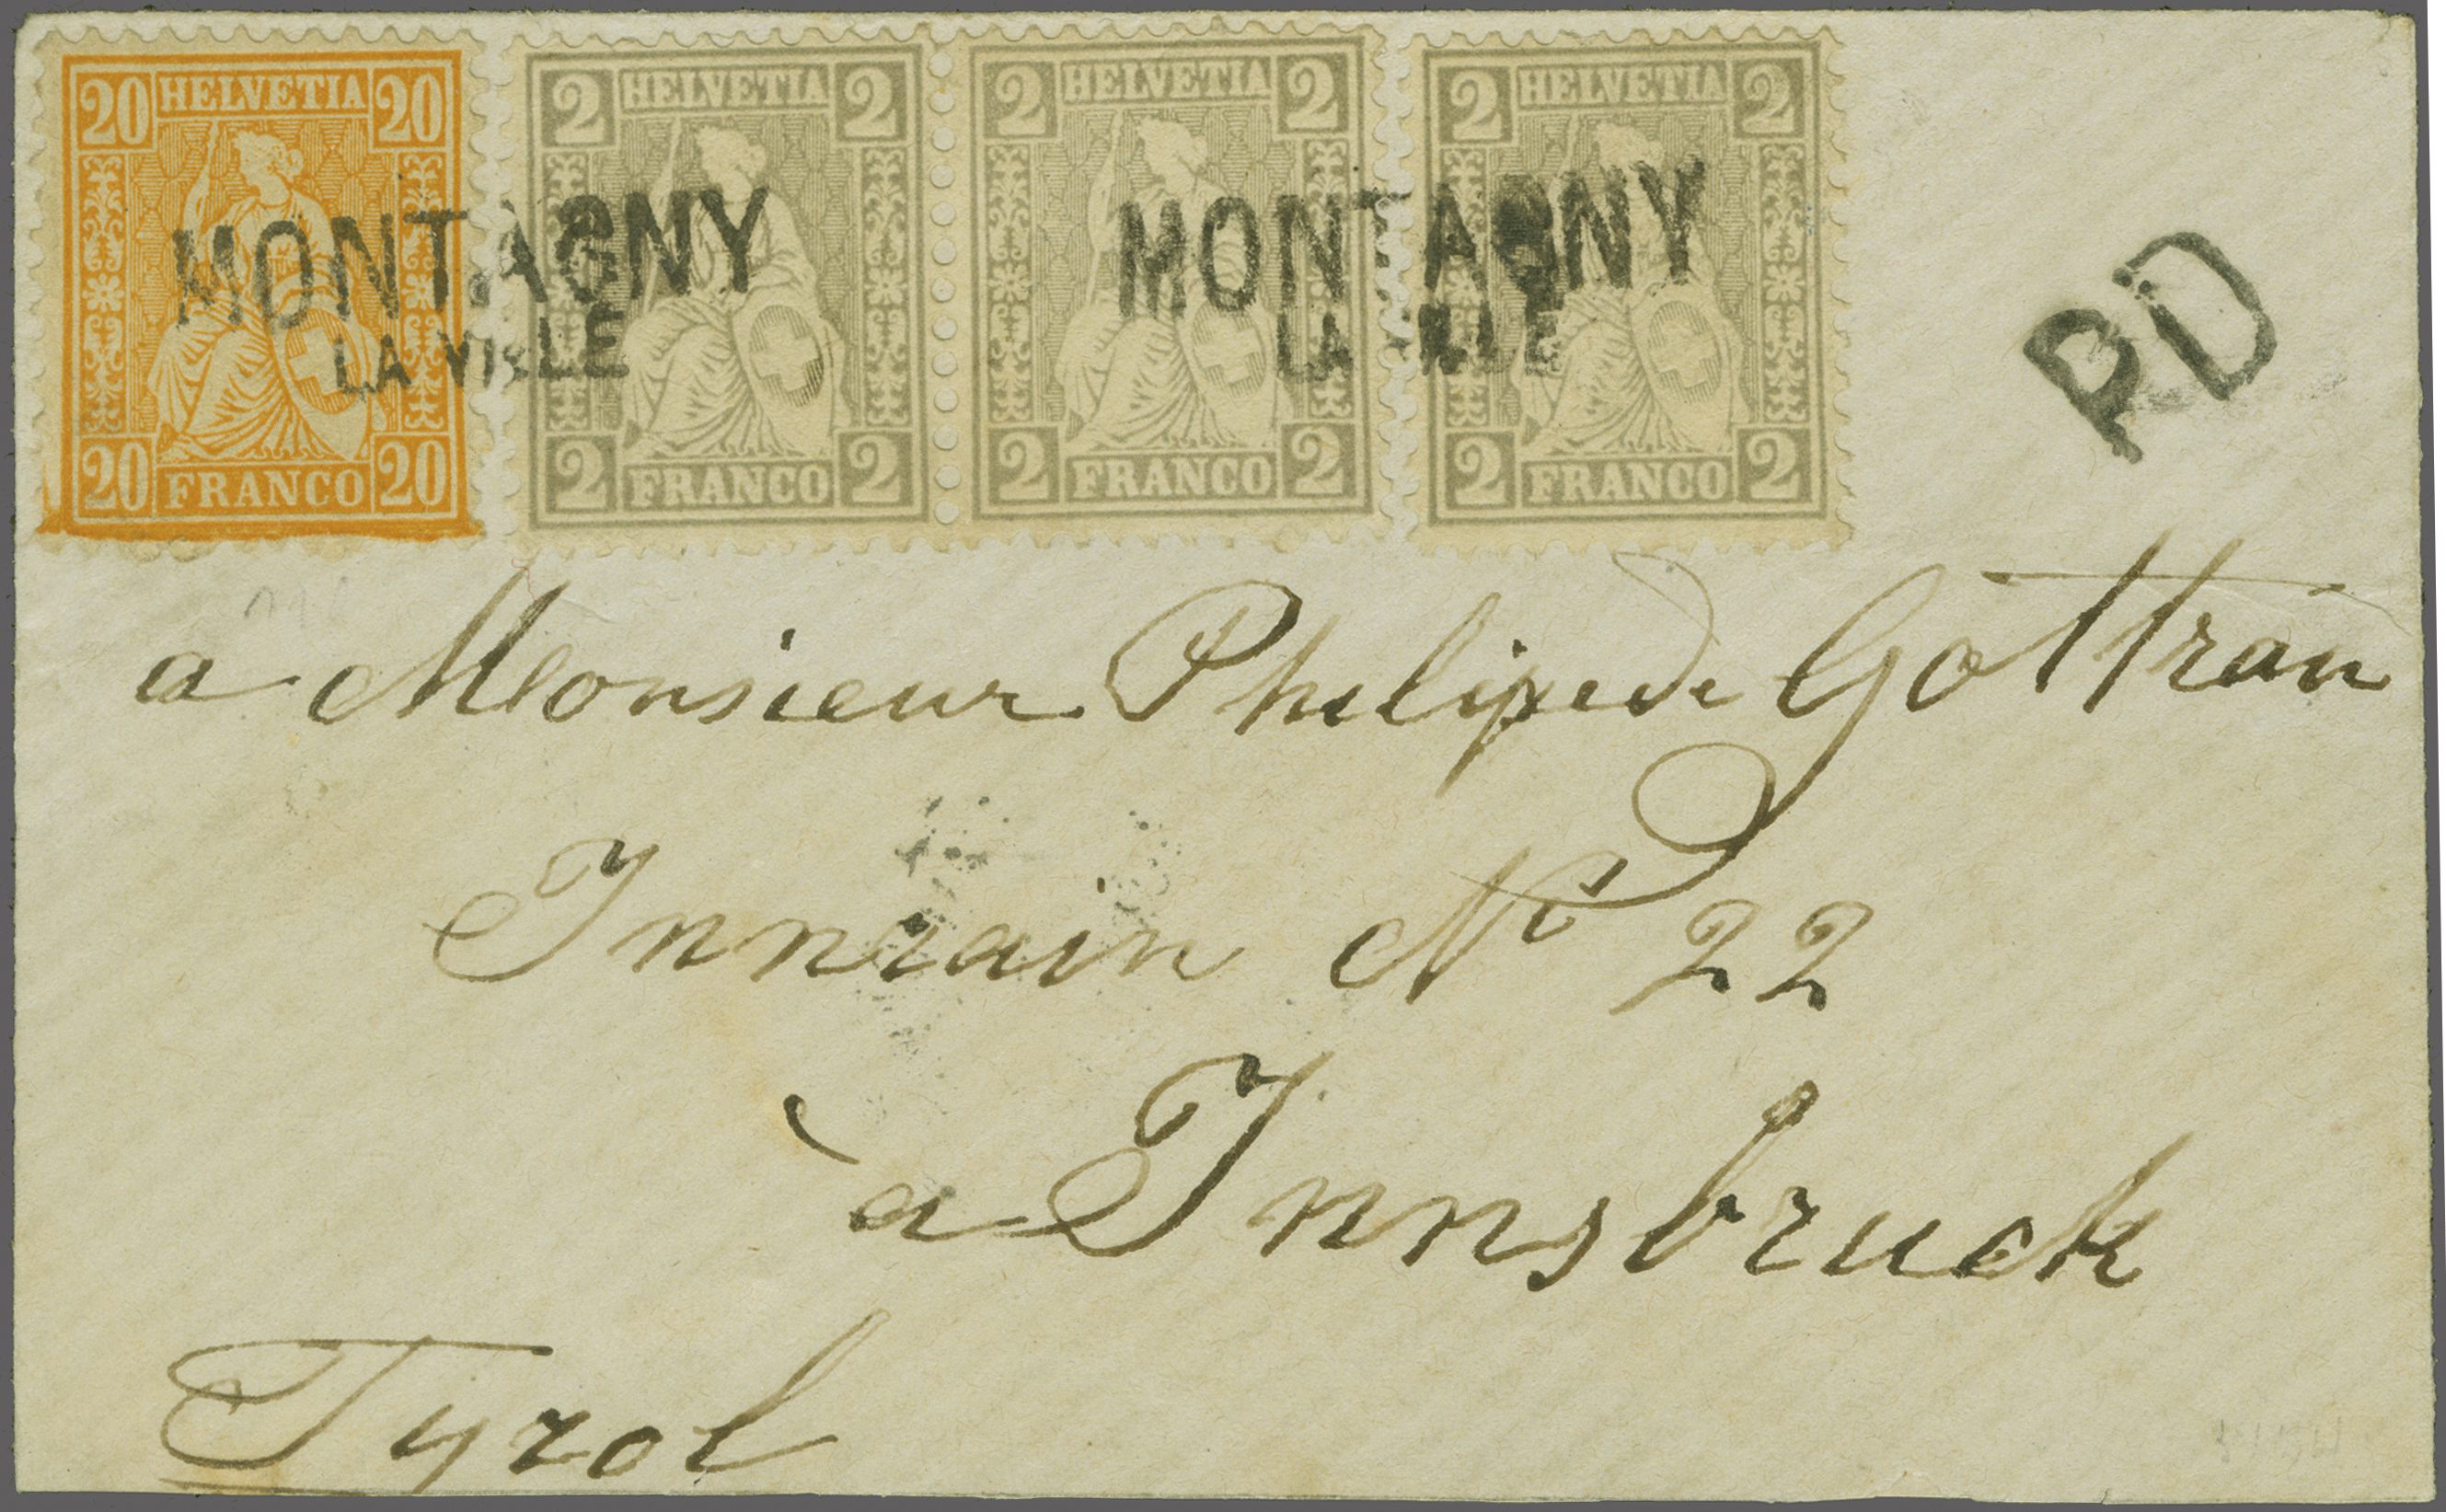 20 HELVETIA 20 2 HELVETIA 2 2 HELVETIA 2 2 HELVETIA 2
MONTAGNY MONTAGNY
LA VILLE LA VILLE
PD
20 FRANCO 20 2 FRANCO 2 2 FRANCO 2 2 FRANCO 2
a Monsieur Philipe de Gottran
Innrain No 22
à Innsbruck
Tyrol